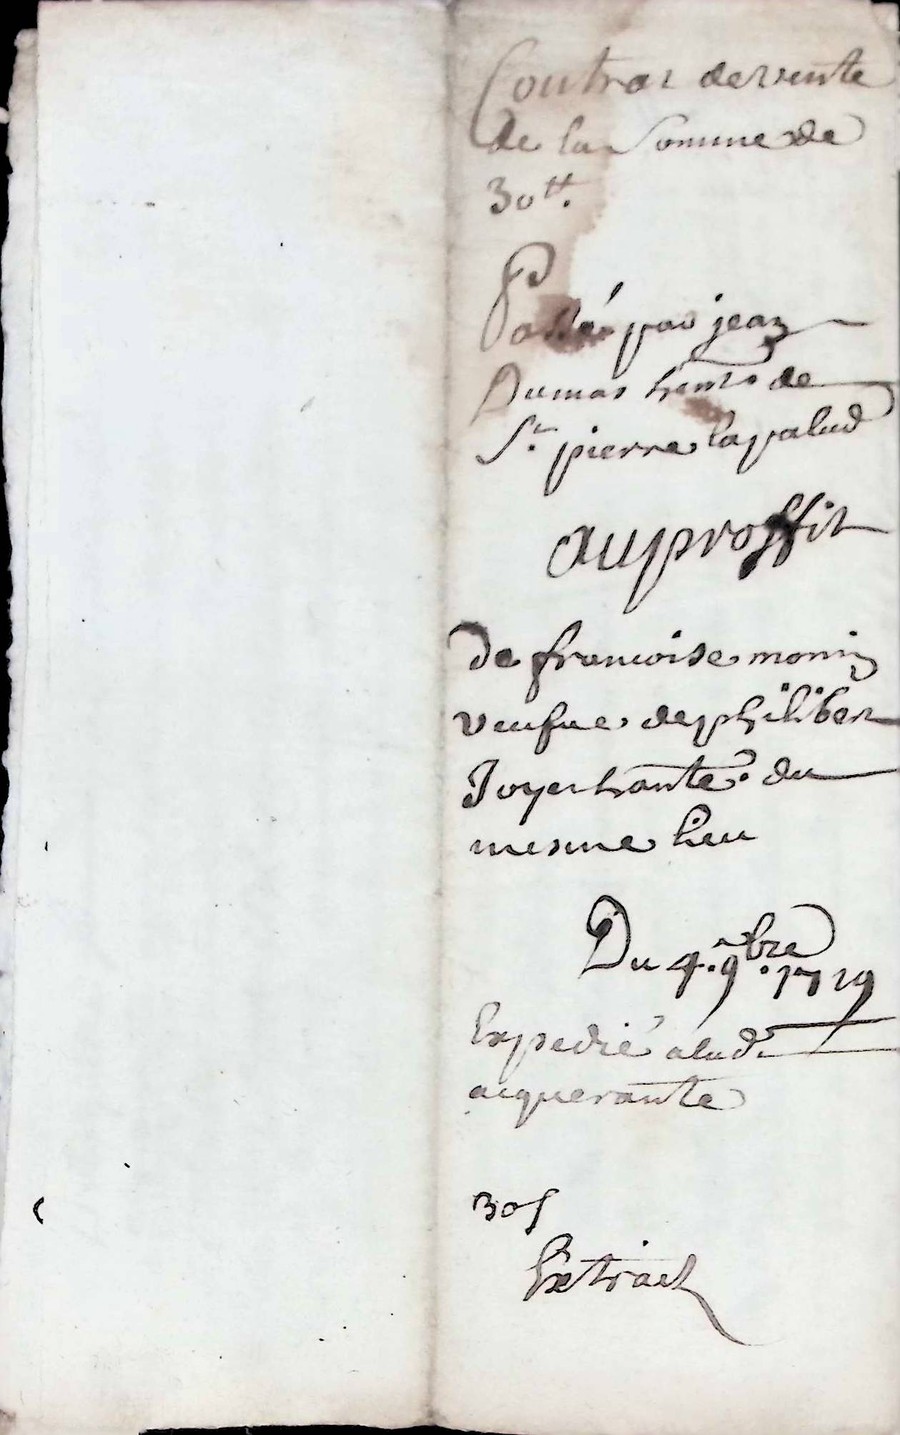 Contrat de vente
de la Somme de
30tt.
Passé par jean
Dumas habts de
St. pierre lapalud
au proffit
de francoise monin
veufue de philibert
Joyer hante. du
mesme lieu
Du 4.e 9.bre 1719
Expedié alad.
acquerante
30ſ
Extraict